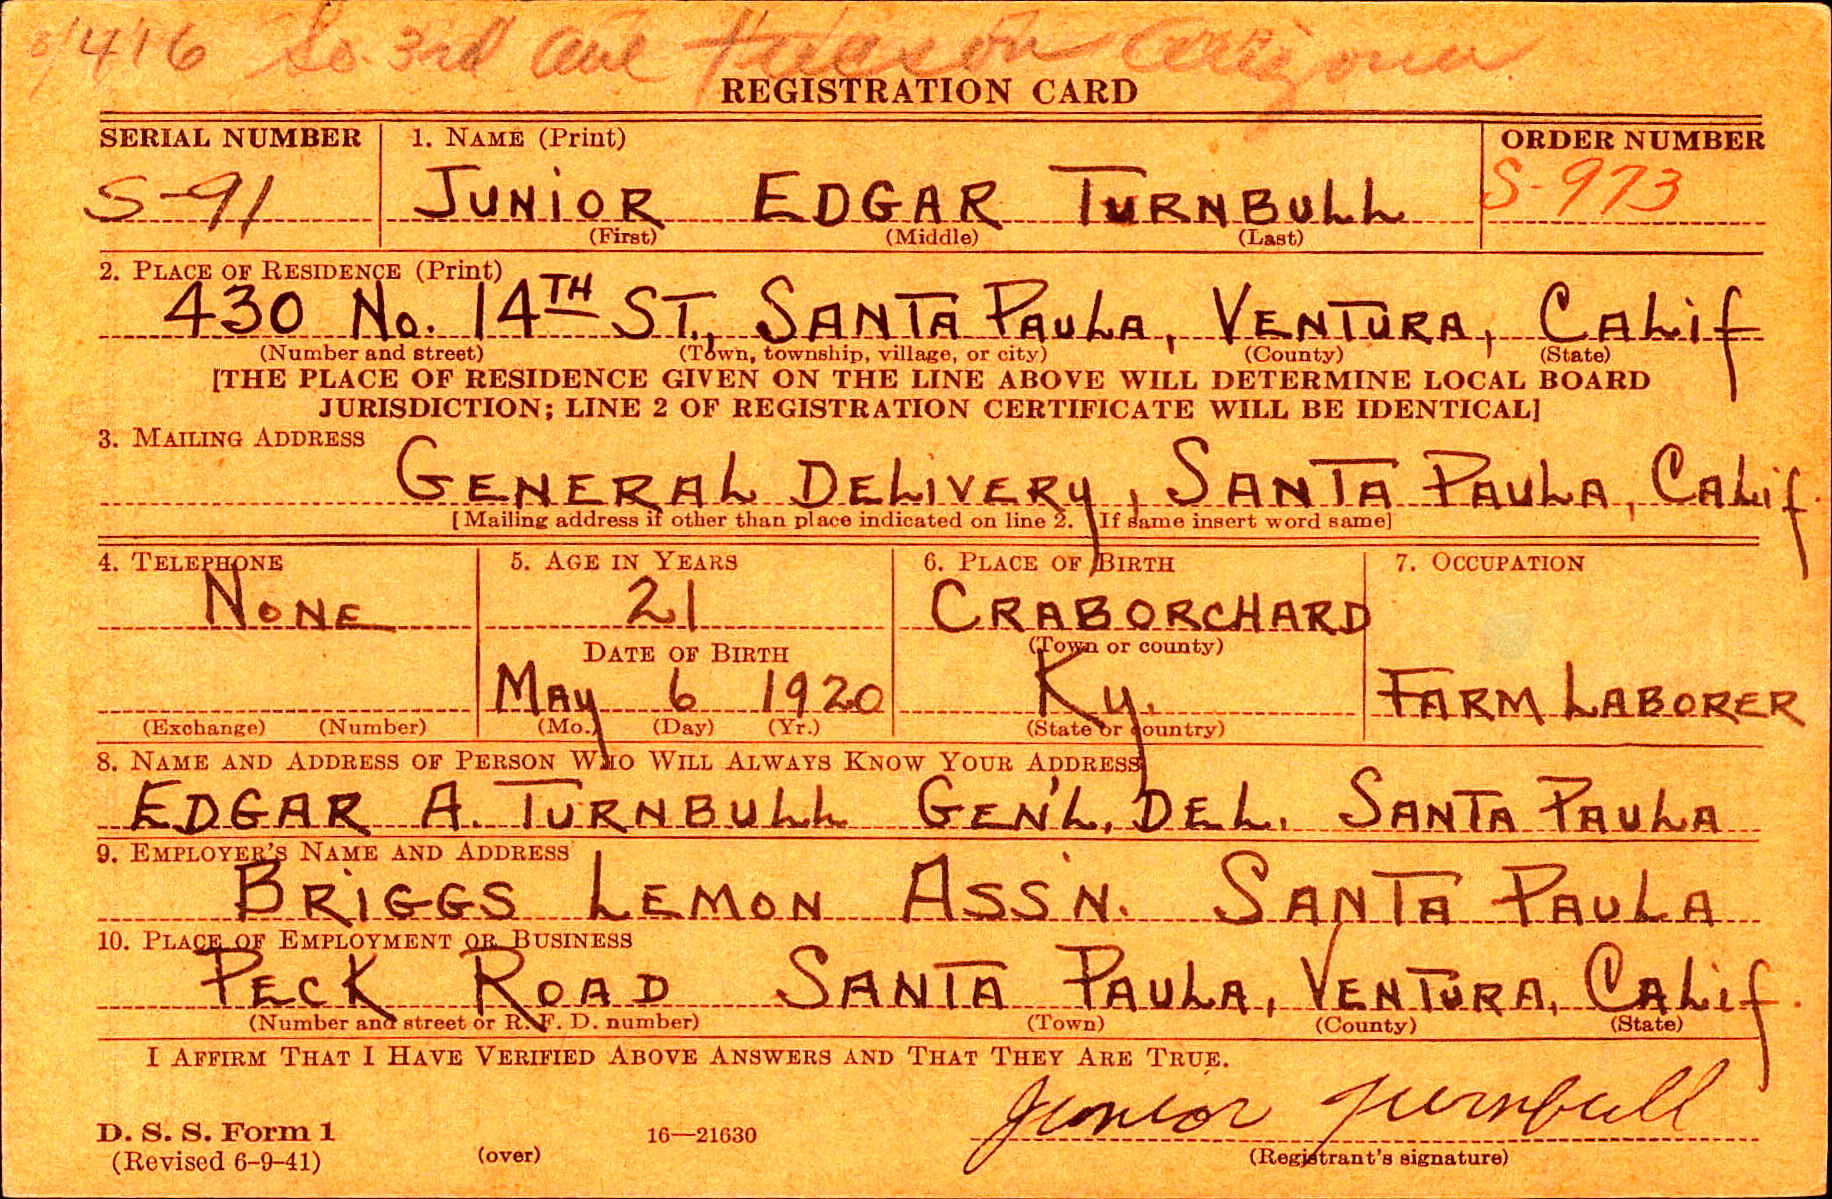 1416 So. 3rd ave Tucson Arizona
REGISTRATION CARD
SERIAL NUMBER 1. NAME (Print) ORDER NUMBER
S-91 JUNIOR EDGAR TURNBULL S-973
(First) (Middle) (Last)
2. PLACE OF RESIDENCE (Print)
430 No. 14TH ST., SANTA PAULA, VENTURA, CALIF
(Number and street) (Town, township, village, or city) (County) (State)
[THE PLACE OF RESIDENCE GIVEN ON THE LINE ABOVE WILL DETERMINE LOCAL BOARD
JURISDICTION; LINE 2 OF REGISTRATION CERTIFICATE WILL BE IDENTICAL]
3. MAILING ADDRESS
GENERAL DELIVERY, SANTA PAULA, CALIF.
[Mailing address if other than place indicated on line 2. If same insert word same]
4. TELEPHONE 5. AGE IN YEARS 6. PLACE OF BIRTH 7. OCCUPATION
NONE 21 CRABORCHARD
DATE OF BIRTH (Town or county)
MAY 6 1920 KY. FARM LABORER
(Exchange) (Number) (Mo.) (Day) (Yr.) (State or country)
8. NAME AND ADDRESS OF PERSON WHO WILL ALWAYS KNOW YOUR ADDRESS
EDGAR A. TURNBULL GEN'L. DEL. SANTA PAULA
9. EMPLOYER'S NAME AND ADDRESS
BRIGGS LEMON ASS'N. SANTA PAULA
10. PLACE OF EMPLOYMENT OR BUSINESS
PECK ROAD SANTA PAULA, VENTURA, CALIF.
(Number and street or R. F. D. number) (Town) (County) (State)
I AFFIRM THAT I HAVE VERIFIED ABOVE ANSWERS AND THAT THEY ARE TRUE.
Junior Turnbull
D. S. S. Form 1 16—21630
(Revised 6-9-41) (over) (Registrant's signature)